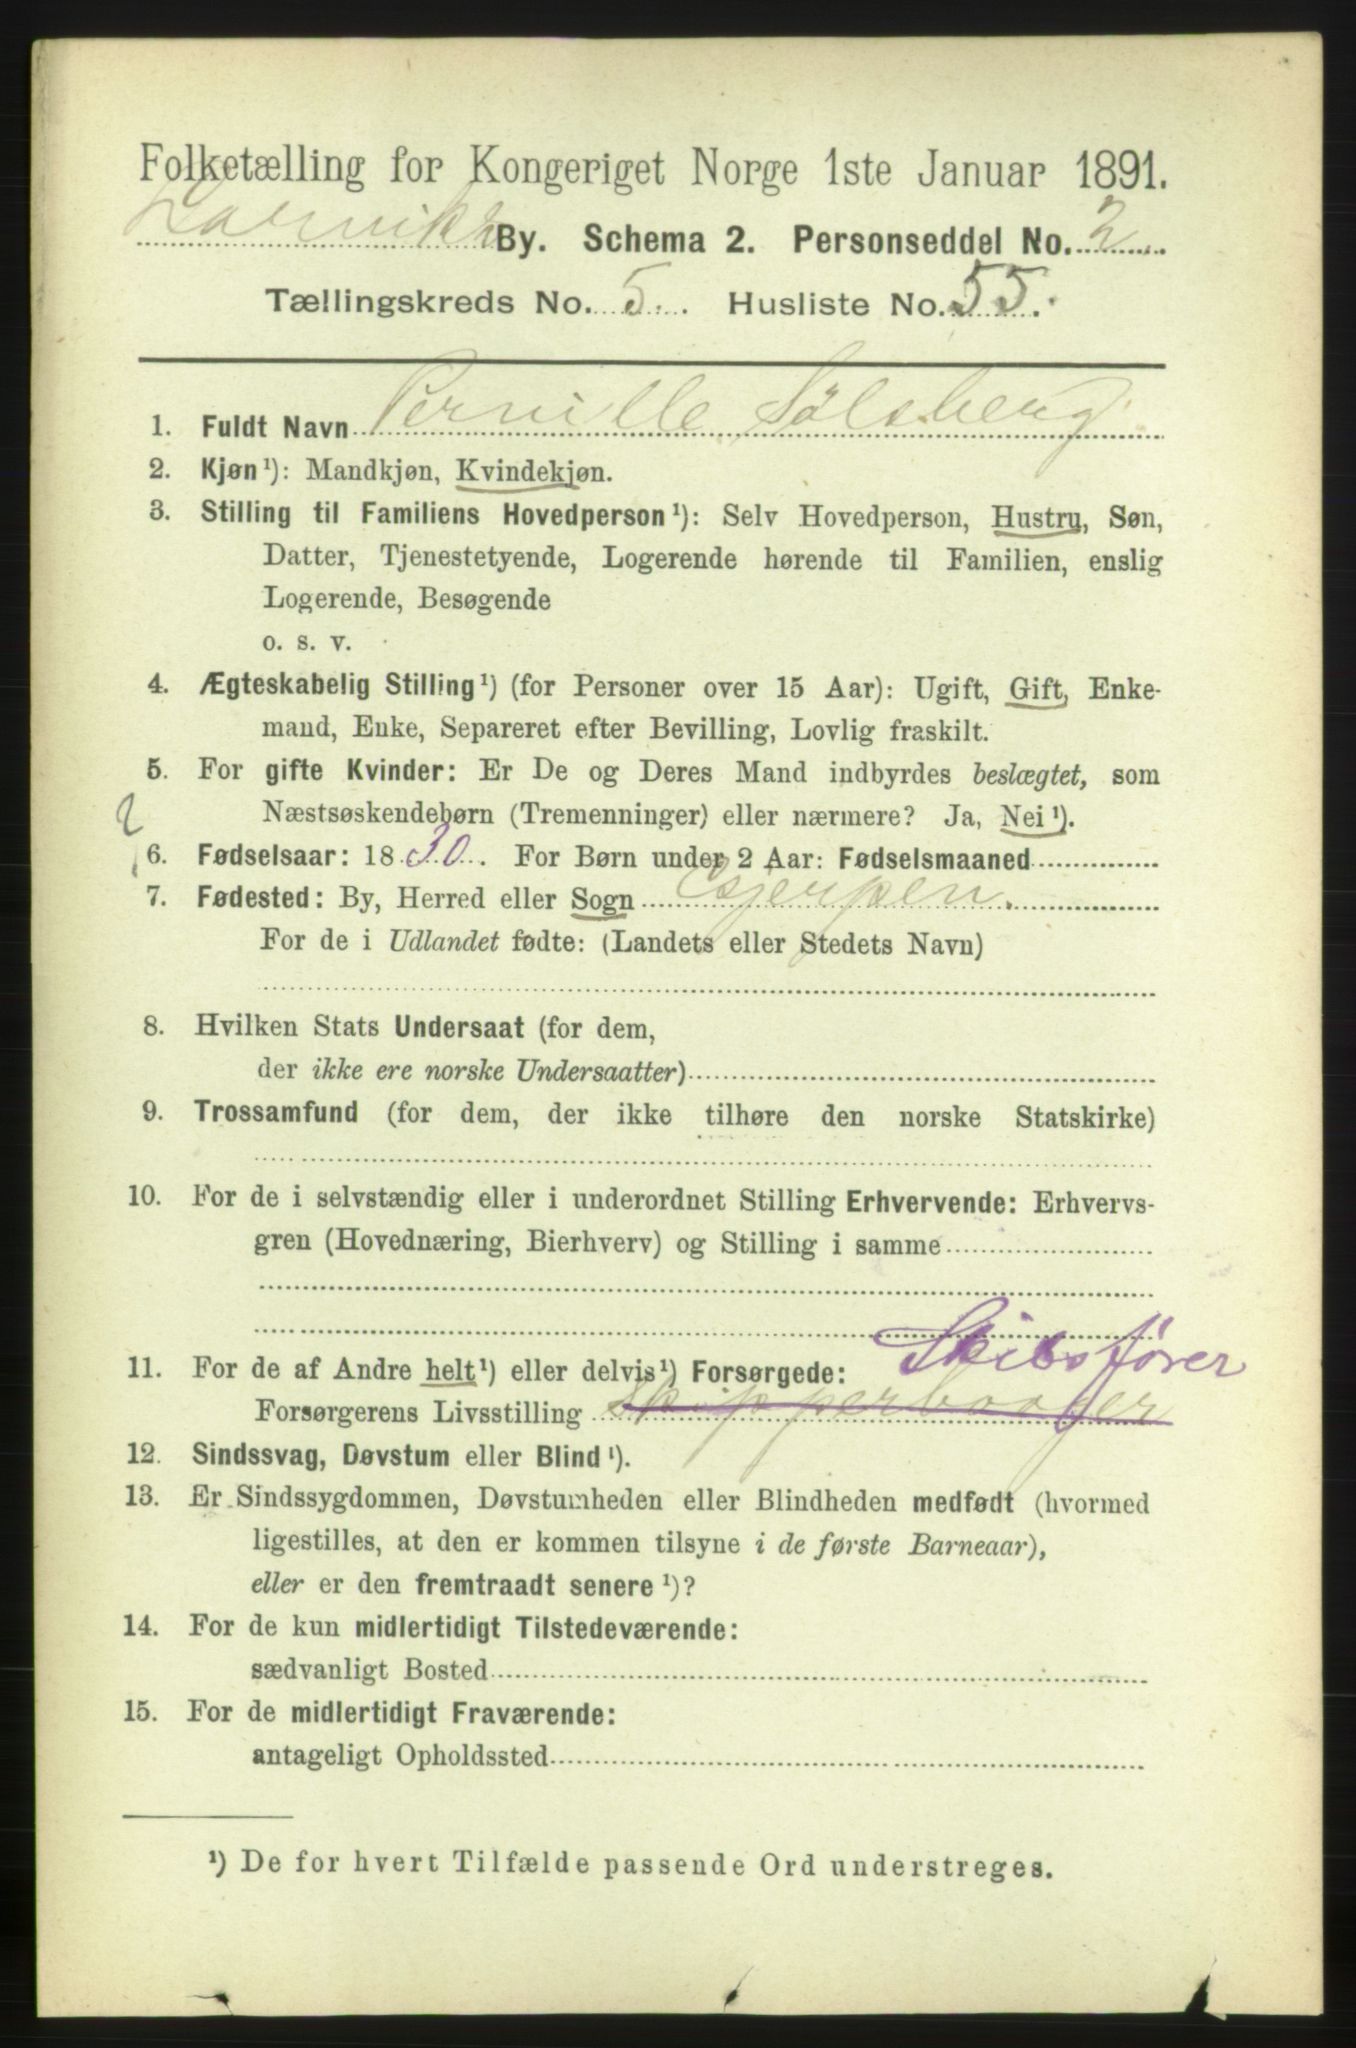 Folketælling for Kongeriget Norge 1ste Januar 1891.
Larvik By. Schema 2. Personseddel No. 2
Tællingskreds No. 5. Husliste No. 55.
1. Fuldt Navn Pernille Sölsberg
2. Kjøn¹): Mandkjøn, Kvindekjøn.
3. Stilling til Familiens Hovedperson¹): Selv Hovedperson, Hustru, Søn,
Datter, Tjenestetyende, Logerende hørende til Familien, enslig
Logerende, Besøgende
o. s. v.
4. Ægteskabelig Stilling¹) (for Personer over 15 Aar): Ugift, Gift, Enke-
mand, Enke, Separeret efter Bevilling, Lovlig fraskilt.
5. For gifte Kvinder: Er De og Deres Mand indbyrdes beslægtet, som
Næstsøskendebørn (Tremenninger) eller nærmere? Ja, Nei¹).
6. Fødselsaar: 1830. For Børn under 2 Aar: Fødselsmaaned
7. Fødested: By, Herred eller Sogn Gjerpen.
For de i Udlandet fødte: (Landets eller Stedets Navn)
8. Hvilken Stats Undersaat (for dem,
der ikke ere norske Undersaatter)
9. Trossamfund (for dem, der ikke tilhøre den norske Statskirke)
10. For de i selvstændig eller i underordnet Stilling Erhvervende: Erhvervs-
gren (Hovednæring, Bierhverv) og Stilling i samme
11. For de af Andre helt¹) eller delvis¹) Forsørgede: Skibsfører
Forsørgerens Livsstilling
12. Sindssvag, Døvstum eller Blind¹).
13. Er Sindssygdommen, Døvstumheden eller Blindheden medfødt (hvormed
ligestilles, at den er kommen tilsyne i de første Barneaar),
eller er den fremtraadt senere¹)?
14. For de kun midlertidigt Tilstedeværende:
sædvanligt Bosted
15. For de midlertidigt Fraværende:
antageligt Opholdssted
¹) De for hvert Tilfælde passende Ord understreges.